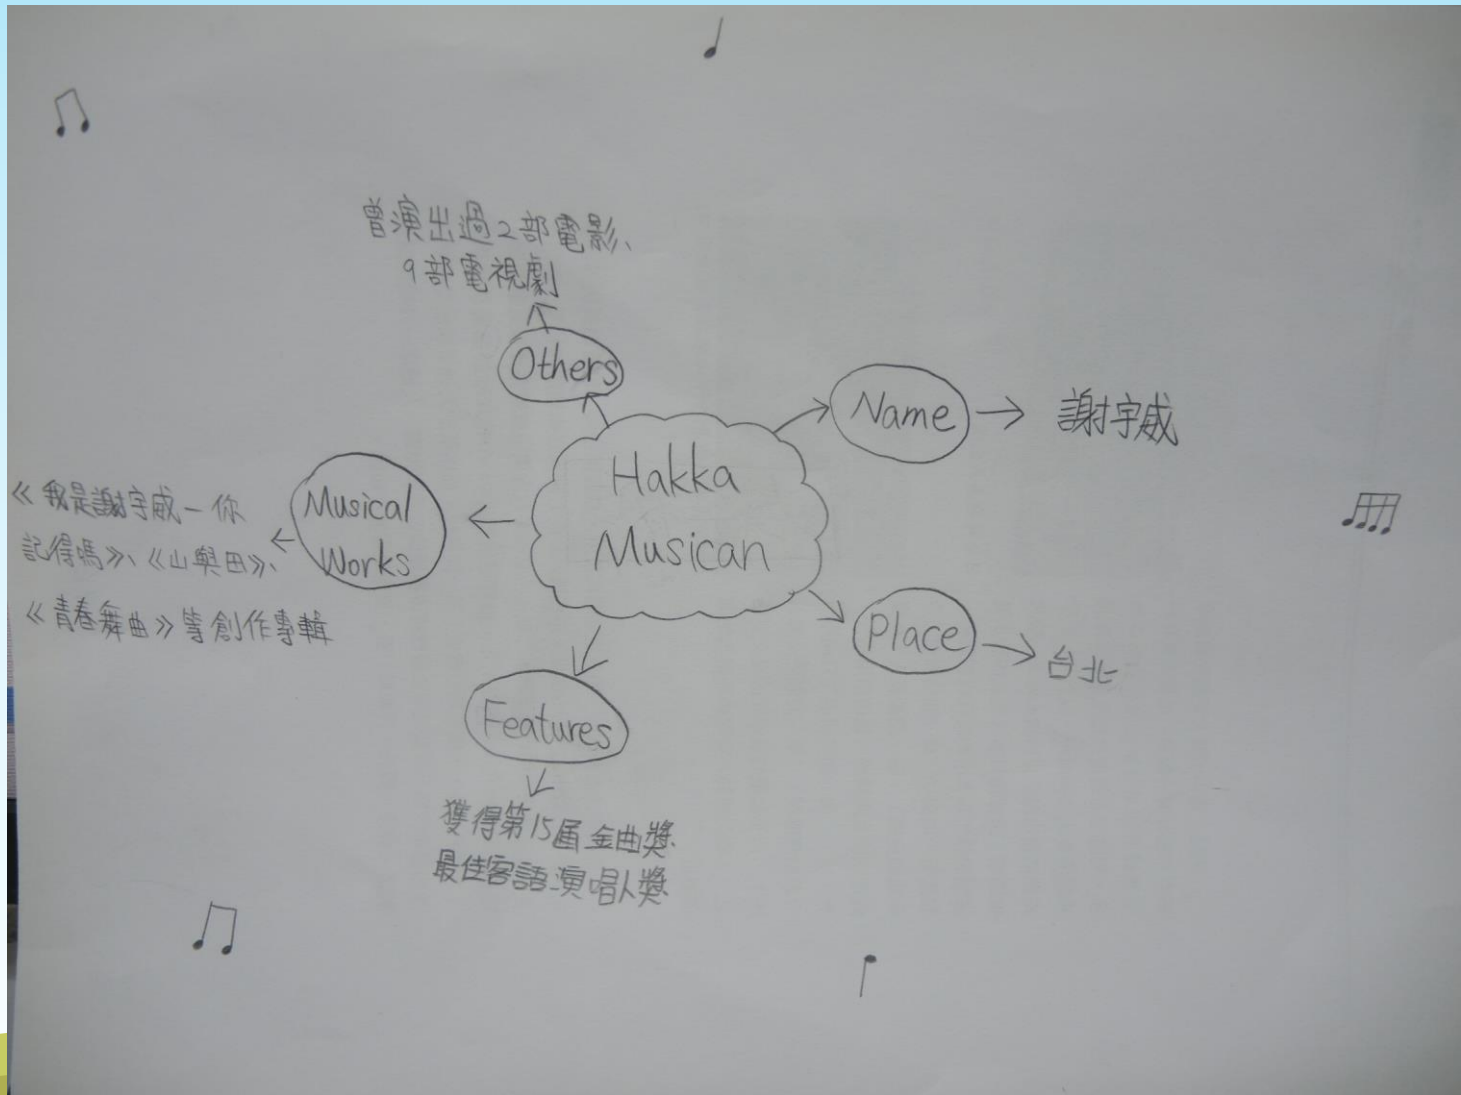 曾演出過2部電影、
9部電視劇
Others
Name
謝宇威
Hakka
Musican
Musical
Works
《我是謝宇威－你
記得嗎》、《山與田》、
《青春舞曲》等創作專輯
Place
台北
Features
獲得第15屆金曲獎
最佳客語演唱人獎